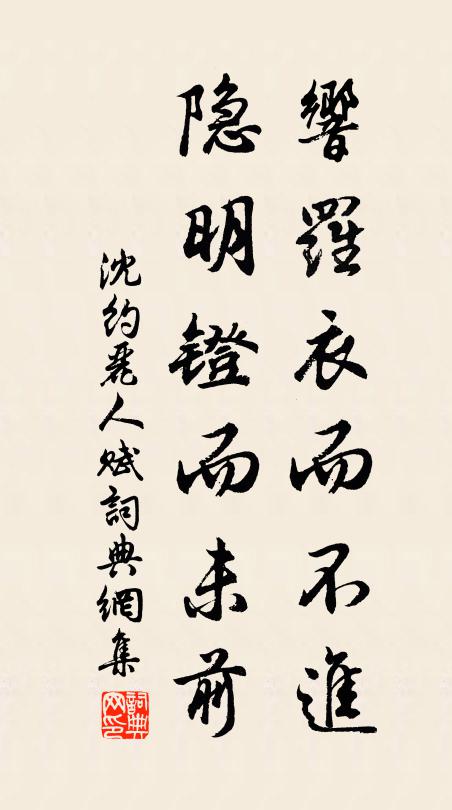 響羅衣而不進
隐明鐙而未前
沈約麗人賦詞典網集
詞典網印